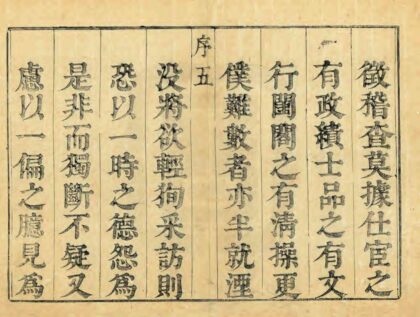 徵稽查莫據仕宦之
有政績士品之有文
行閨閤之有清操更
僕難數者亦半就湮
序五
没將欲輕狥采訪則
恐以一時之德怨為
是非而獨斷不疑又
慮以一偏之臆見為